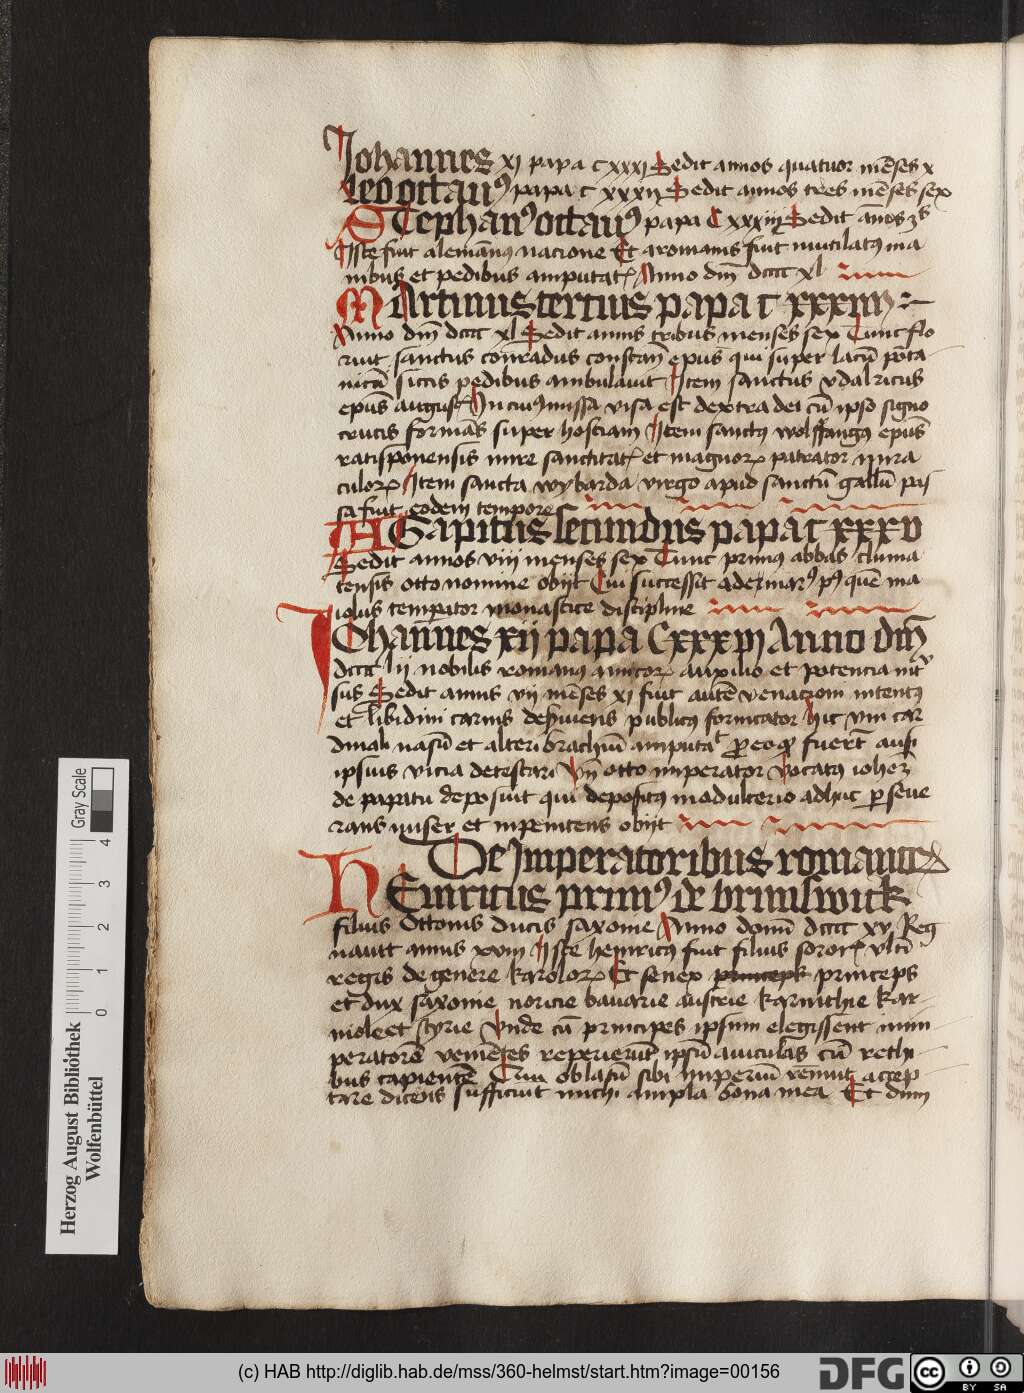 Johannes xj papa cxxxj Sedit annos quatuor mēses x
Leo octau⁹ papa c xxxij Sedit annos tres mēses sex
Stephan⁹ octau⁹ papa Cxxxiij Sedit ānos
Iste fuit alemān⁹ nacione Et a romanis fuit mutilat⁹ ma
nibus et pedibus amputat Anno dm̄ dcccc xl
MArtinus tercius papa c xxxiiij
Anno dm̄ dcccc xl Sedit annis tribus menses sex Tunc flo
ruit sanctus conradus constanc̄ epūs qui super lacū pōta
nicū siccis pedibus ambulauit Item sanctus vdalricus
epūs august In cui⁹ missa visa est dextra dei cū ipso signo
crucis formās super hostiam Item sanct⁹ wolffgang⁹ epūs
ratisponensis mire sanctitat et magnor patrator mira
culor Item sancta wybarda virgo apud sanctū gallū pas
sa fuit eodem tempore
AGapitus secundus papa c xxxv
Sedit annos viij menses sex Tunc primus abbas clunia
censis otto nomine obijt Cui successit ademar⁹ p⁹ quē ma
iolus temperator monastice discipline
IOhannes xij papa Cxxxvj Anno dm̄
dcccc lij nobilis romanus amicor auxilio et potencia int
sus Sedit annis vij mēses xj fuit autē venacioni intent⁹
et libidini carnis deseruiens publicus fornicator hic vni car
dinali nasū et alteri brachiū amputat p eo quod fuerūt ausi
ipsius vicia detestari Vn̄ otto imperator vocat⁹ iohēz
de papatu deposuit qui deposit⁹ in adulterio adhuc pseue
rans miser et inpenitens obijt
De Imperatoribus romanor
HEinricus prim⁹ de brunswick
filius Ottonis ducis saxonie Anno domī dcccc xv Reg
nauit annis xviij Iste heinric⁹ fuit filius soror vltī
regis de genere karolor Et senex princeps princeps
et dux saxonie noricie bauarie austrie karinthie kar
niole et styrie Vnde cū principes ipsum elegissent in im
peratorē venientes reperierūt ipsū auiculas cū rethi
bus capientē Cui oblatū sibi imperiū renuit accep
tare dicens sufficiunt michi ampla bona mea Et dum
Gray Scale
0 1 2 3 4
Herzog August Bibliothek
Wolfenbüttel
(c) HAB http://diglib.hab.de/mss/360-helmst/start.htm?image=00156
DFG
cc BY SA